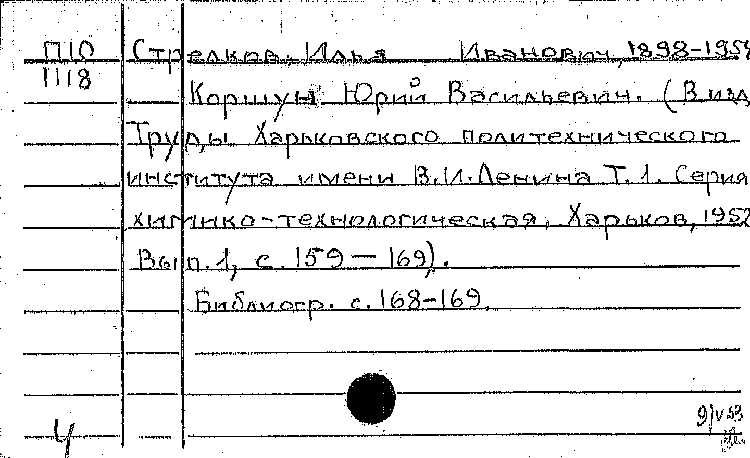 П10 Стрелков, Илья Иванович, 1898-195
1118
Коршун Юрий Васильевич. (В изд
Труды Харьковского политехнического
института имени В.И.Ленина Т.1. Серия
химико-технологическая, Харьков, 1952
Вып.1, с. 159 — 169).
Библиогр. с. 168-169.
9/V 53
Ч